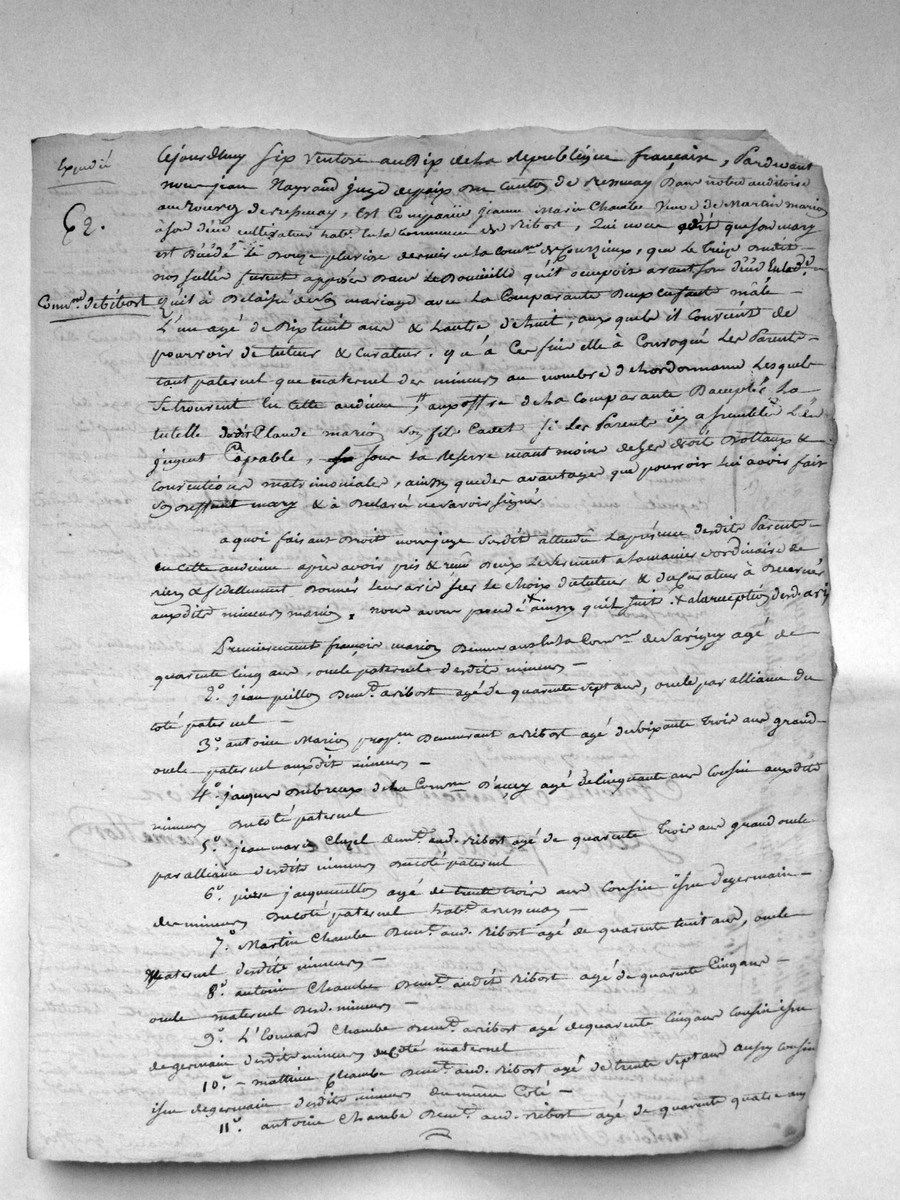 Expedié
62.
Comm.ne de Ribost
Cejourdhuy Six Ventose an Dix de la Republique française, Pardevant
nous jean Nayrand juge depaix du Canton de Bessenay Dans notre auditoire
au Bourg de Bessenay, Est Comparüe jeanne Marie Chambe Veuve de Martin marion
à Son Vivant cultivateur habt. de la commune de Ribost, Qui nous a dit que son mary
est Décédé le Douze pluviose dernier en la Comm.ne de Courzieux, que le
furent apposés Dans le Domicille qu'il occupoit avant son
qu'il à Délaissé de son mariage avec la Comparante Deux enfants mâle
L'un agé de Dix huit ans & Lautre d'huit, auxquels il Convient de
pourvoir de tuteur & curateur. qu'à Ces fins elle à Convoqué Les Parents
tant paternel que maternel des mineurs au nombre de Lordonnance Lesquels
Se trouvent En cette audience, aux offre de La Comparante D'accepter La
tutelle dudit Claude marion Son fils Cadet Si Les Parents icy assemblés L'en
jugent Capable, Sous La Reserve neant moins de Ses droits Dottaux &
conventions matrimoniales, ainsy que des avantages que pourroit Lui avoir fait
Son Deffunt mary & à Déclaré ne Savoir Signer
a quoi faisant Droit nous juge Susdit attendu La présence desdits Parents
en cette audience après avoir pris & reçu Deux Le Serment a la maniere ordinaire de
bien & fidellement Donner Leur avis Sur Le Choix du tuteur & du Curateur à Decerner
auxdits mineurs marion, nous avons procédé + ainsy qu'il Suit. + a la reception desd. avis
Premierement françois marion Demeurant en la Comm.ne de Savigny agé de
quarente Cinq ans, oncle paternel desdits mineurs —
2.º jean peillon Demt. a ribost agé de quarente Sept ans, oncle par alliance du
coté paternel —
3.º antoine Marion prop.re Demeurant a Ribost agé de Soixante trois ans grand
oncle paternel auxdits mineurs —
4.º jacques Dubreux de la Comm.ne D'ancy agé de Cinquante ans Cousin auxdits
mineurs Du coté paternel
5.º jean marie Clusel Demt. aud. Ribost agé de quarente trois ans grand oncle
par alliance desdits mineurs Du coté paternel
6.º pierre jacquemetton agé de trente trois ans Cousin issu de germain
des mineurs Du coté paternel habt. a Bessenay —
7.º Martin Chambe Demt. aud. Ribost agé de quarente huit ans, oncle
Maternel desdits mineurs —
8.º antoine Chambe Demt. audit Ribost agé de quarente Cinq ans —
oncle maternel desd. mineurs —
9.º L'Eonnard Chambe Demt. a Ribost agé de quarente Cinq ans Cousin issu
de germain desdits mineurs du Coté maternel
10.º — mathieu Chambe Demt. aud. Ribost agé de trente Sept ans aussy Cousin
issu de germain desdits mineurs du même Coté —
11.º antoine Chambe Demt. aud. Ribost agé de quarente quatre ans